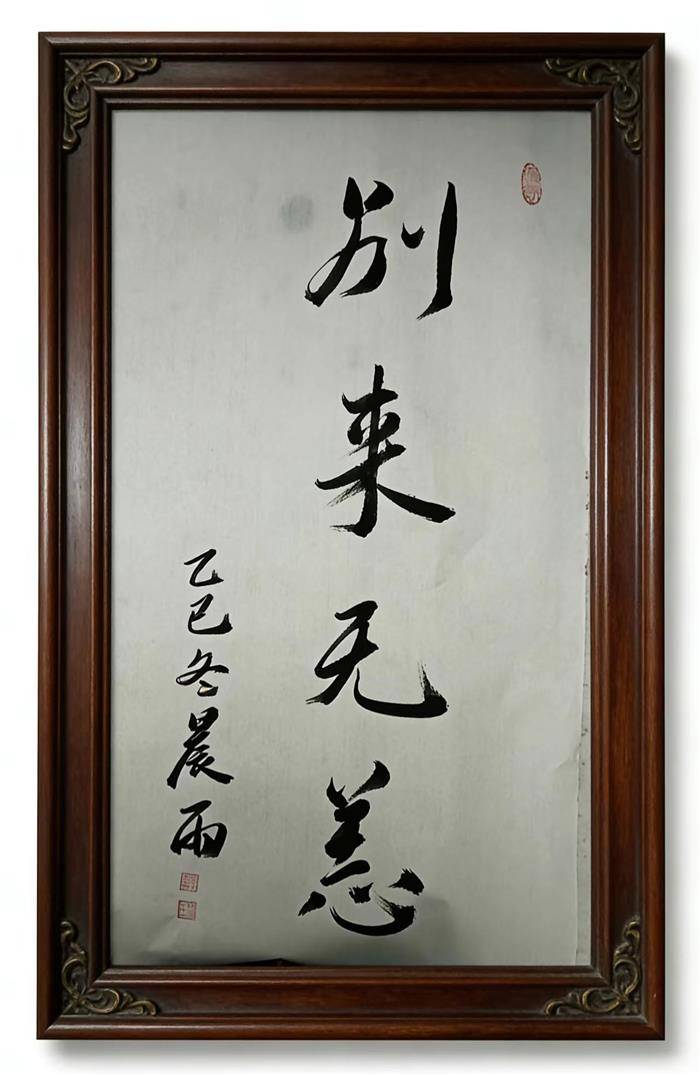 别来无恙
乙巳冬晨雨